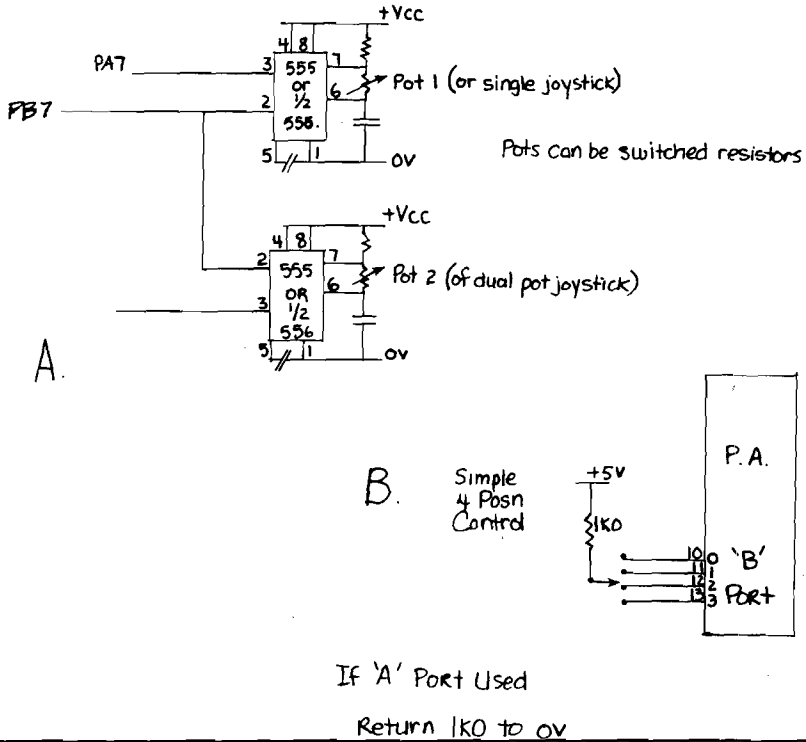 +Vcc
4 8
PA7
3
555
7
or
Pot 1 (or single joystick)
6
PB7
2
1/2
555.
5
1
0V
Pots can be switched resistors
+Vcc
4 8
2
555
7
OR
6
Pot 2 (of dual pot joystick)
3
1/2
556
5
1
0V
A.
P.A.
B.
Simple
4 Posn
Control
+5V
1K0
10 0 'B'
11 1
12 2
13 3 PORT
If 'A' Port Used
Return 1K0 to 0V